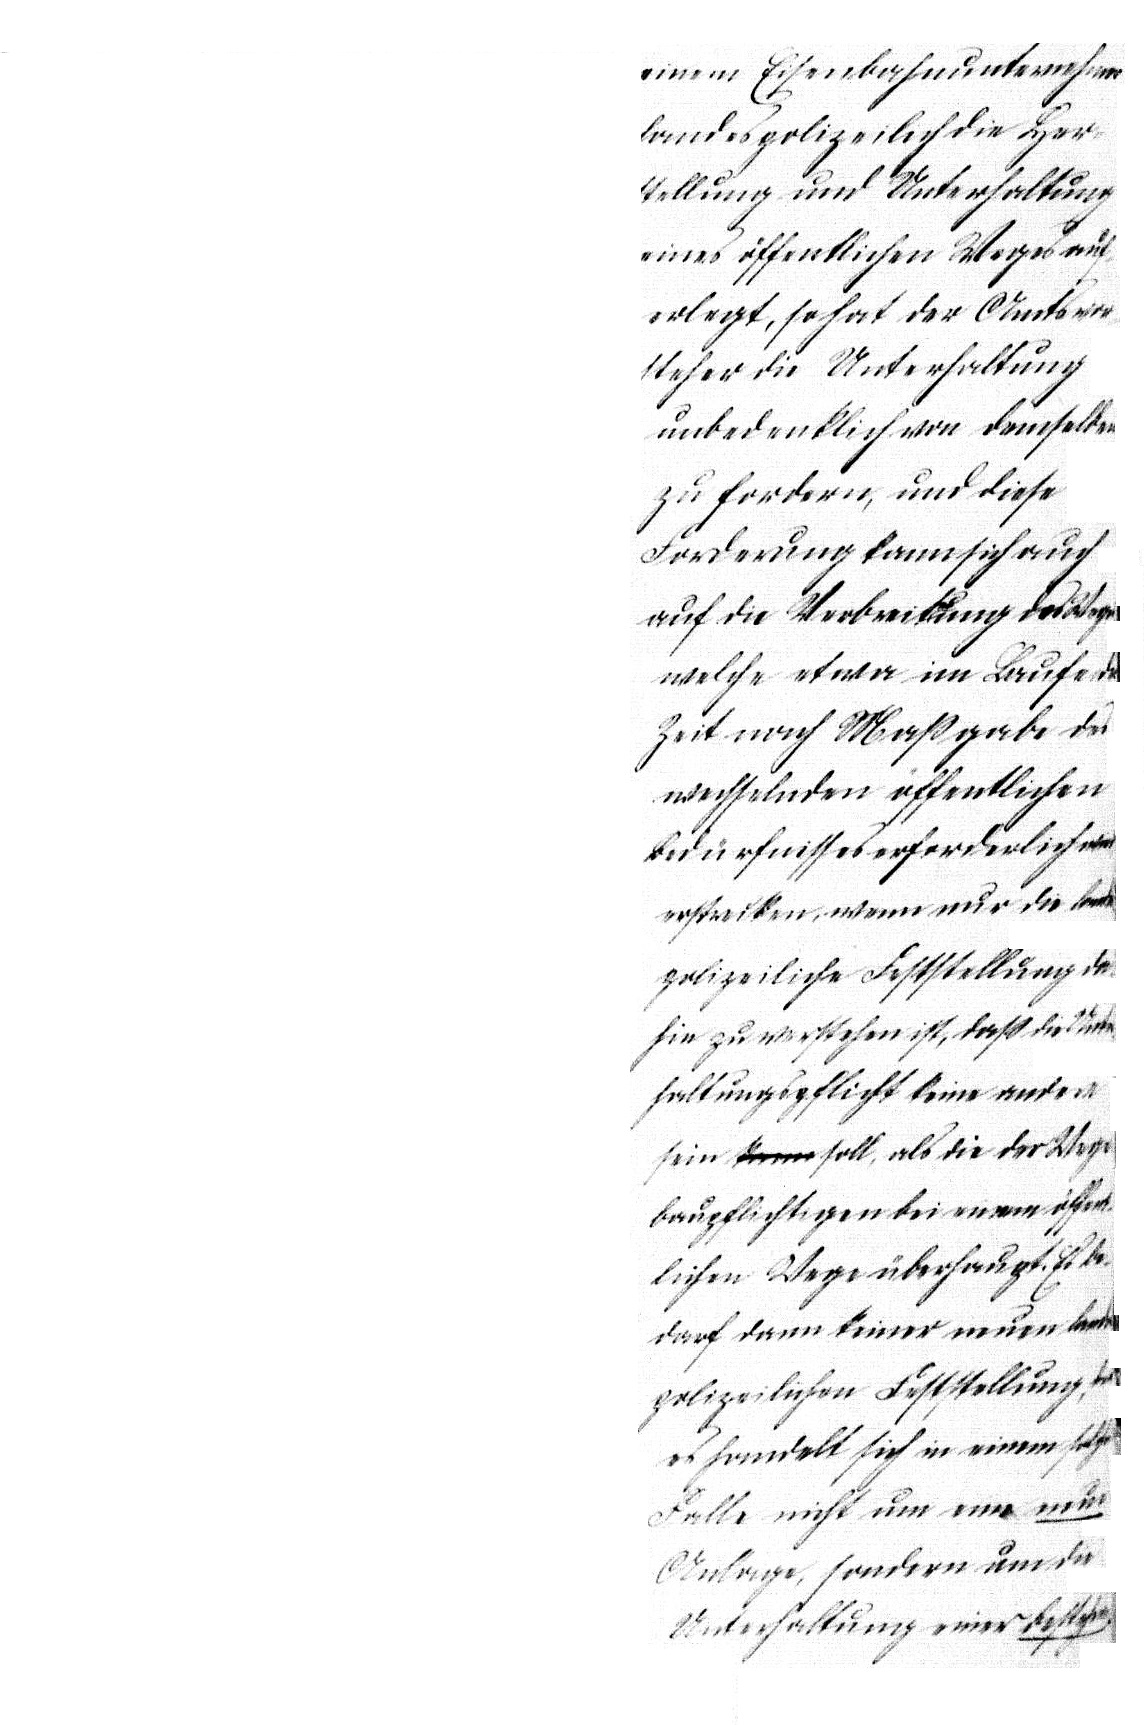 einem Eisenbahnunternehmer
landespolizeilich die Her-
stellung und Unterhaltung
eines öffentlichen Weges auf-
erlegt, so hat der Amtsvor-
steher die Unterhaltung
unbedenklich von demselben
zu fordern, und diese
Forderung kann sich auch
auf die Verbreitung des Weges
welche etwa im Laufe der
Zeit nach Maßgabe des
wechselnden öffentlichen
Bedürfnisses erforderlich wird
erstrecken, wenn nur die landes
polizeiliche Feststellung da-
hin zu verstehen ist, daß die Unter-
haltungspflicht keine andere
sein kann soll, als die der Wege
baupflichtigen bei einem öffent-
lichen Wege überhaupt. Es be-
darf dann keiner neuen landes
polizeilichen Feststellung,
es handelt sich in einem solchen
Falle nicht um eine neue
Anlage, sondern um die
Unterhaltung einer bestehen